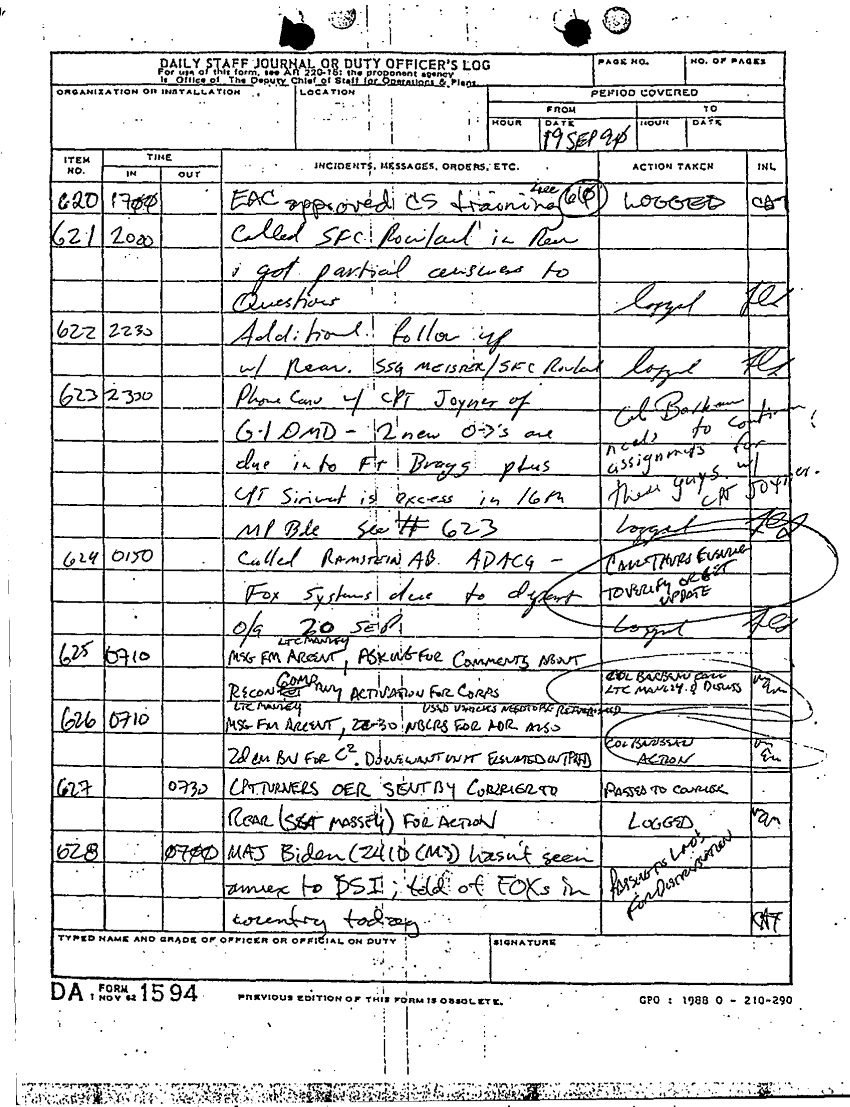 DAILY STAFF JOURNAL OR DUTY OFFICER'S LOG
For use of this form, see AR 220-15; the proponent agency
is Office of The Deputy Chief of Staff for Operations & Plans
PAGE NO.
NO. OF PAGES
ORGANIZATION OR INSTALLATION
LOCATION
PERIOD COVERED
FROM
TO
HOUR
DATE
HOUR
DATE
19 SEP 90
ITEM NO.
TIME
IN
OUT
INCIDENTS, MESSAGES, ORDERS, ETC.
ACTION TAKEN
INL
620 1700 EAC approved CS training see 610 LOGGED CAT
621 2000 Called SFC in Rear
& got partial answers to
Questions logged
622 2230 Additional follow up
w/ Rear. SSG MEISNER/SFC logged
623 2300 Phone Conv w/ CPT Joyner of
G-1 OMD - 2 new O-3's are
due into Ft Bragg plus
CPT is excess in 16th
MP Bde See # 623
Col needs to continue assignments for these guys w/ CPT Joyner.
Logged
624 0150 Called RAMSTEIN AB. ADACG -
Fox Systems due to depart
o/a 20 SEP
CALL THURS ENSURE
TO VERIFY OR GET
UPDATE
Logged
625 0710 MSG FM ARCENT, LTC MANLEY ASKING FOR COMMENTS ABOUT
RECON COMPANY ACTIVATION FOR CORPS
COL BARBEAU CALL
LTC MANLEY & DISCUSS
626 0710 MSG FM ARCENT, LTC MANLEY 22-30 NBCRS FOR ADR ALSO
USED VEHICLES NEED TO BE REFURBISHED
2d CM BN FOR C². DO WE WANT UNIT
COL BARBEAU
ACTION
627 0730 CPT. TURNERS OER SENT BY COURRIER TO
REAR (SGT MASSEY) FOR ACTION
PASSED TO COURIER
LOGGED
628 0700 MAJ Biden (24 ID CM) hasn't seen
annex to DSI; told of FOXs in
country today
FOR DISTRIBUTION
CAT
TYPED NAME AND GRADE OF OFFICER OR OFFICIAL ON DUTY
SIGNATURE
DA FORM 1594
1 NOV 62
PREVIOUS EDITION OF THIS FORM IS OBSOLETE.
GPO : 1988 O - 210-290